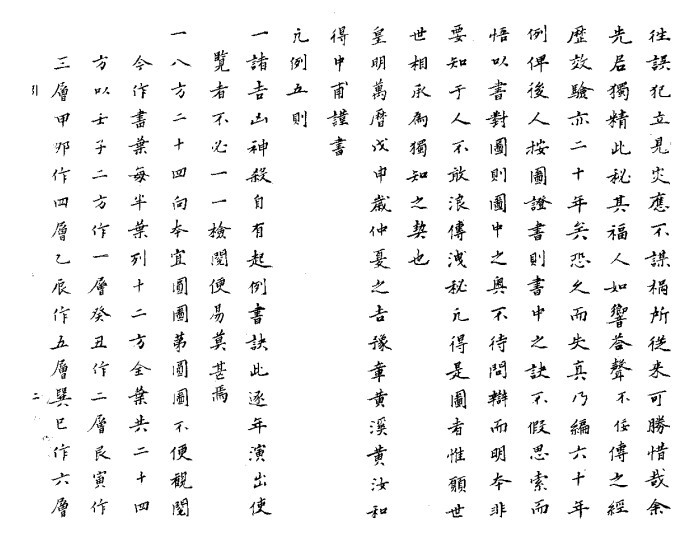 往誤犯立見災應不謀禍所從來可勝惜哉余
先居獨精此秘其福人如響荅聲不佞傳之經
歷效驗亦二十年矣恐久而失真乃編六十年
例俾後人按圖證書則書中之訣不假思索而
悟以書對圖則圖中之奧不待問辯而明本非
要知于人不敢浪傳洩秘凢得是圖者惟願世
世相承為獨知之契也
皇明萬曆戊申歲仲憂之吉豫章黃溪黃汝和
得中甫謹書
凢例五則
一諸吉凶神殺自有起例書訣此逐年演出使
覽者不必一一檢閱便易莫甚焉
一八方二十四向本宜圓圖第圓圖不便觀閱
今作書葉每半葉列十二方全葉共二十四
方以壬子二方作一層癸丑作二層艮寅作
三層甲夘作四層乙辰作五層巽巳作六層
引
二